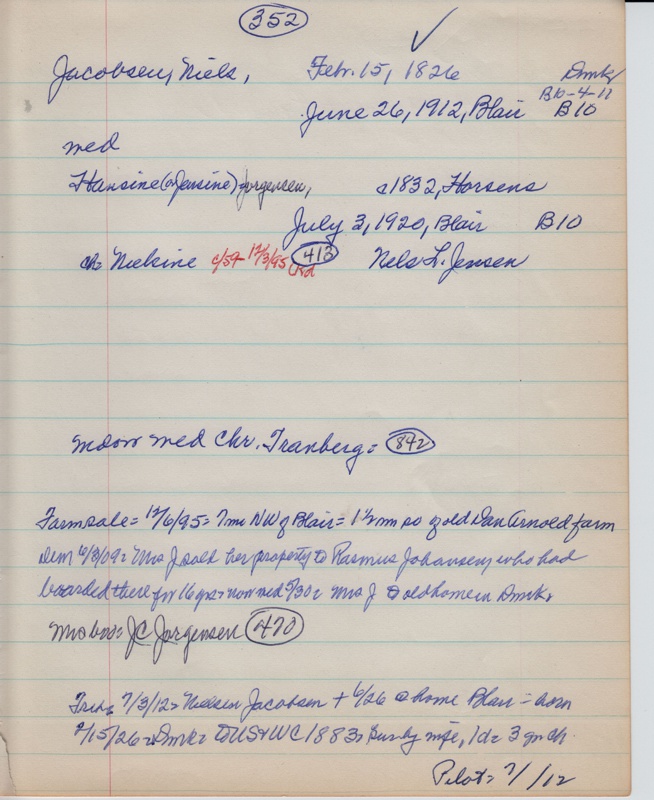 352 ✓
Jacobsen, Niels, Febr. 15, 1826 Dmk
B10-4-11
June 26, 1912, Blair B10
med
Hansine (or Jensine) Jorgensen, c1832, Horsens
July 3, 1920, Blair B10
ch= Nielsine c/59 12/3/95 413 Nels L. Jensen
med Chr. Tranberg= 842
Farm sale= 12/6/95= 7 mi NW of Blair= 1½ mi so of old Dan Arnold farm
Dem 6/3/09= Mrs J sold her property to Rasmus Johansen, who had
boarded there for 16 yrs= now med 5/30= Mrs J to old home in Dmk.
Mrs bro= JC Jorgensen 470
7/3/12= Nielsen Jacobsen + 6/26 @ home Blair= born
2/15/26= Dmk= to US & WC 1883= Surv by wife, 1 d= 3 gr ch.
Pilot= 7/ /12